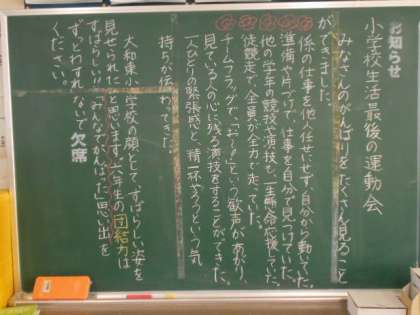 お知らせ
小学校生活最後の運動会
みなさんのがんばりをたくさん見ること
ができました。
係の仕事を他人任せにせず、自分から動いていた。
準備や片づけで、仕事を自分で見つけていた。
他の学年の競技や演技も、一生懸命応援していた。
徒競走で、全員が全力で走っていた。
チームフラッグで、「お〜!!」という歓声があがり、
見ている人の心に残る演技をすることができた。
一人ひとりの緊張感と「精一杯やろう」という気
持ちが伝わってきた。
大和東小学校の顔として、すばらしい姿を
見せられたと思います。六年生の団結力は
すばらしい!!「みんなでがんばった」思い出を
ずっとわすれないで
ください。
欠席